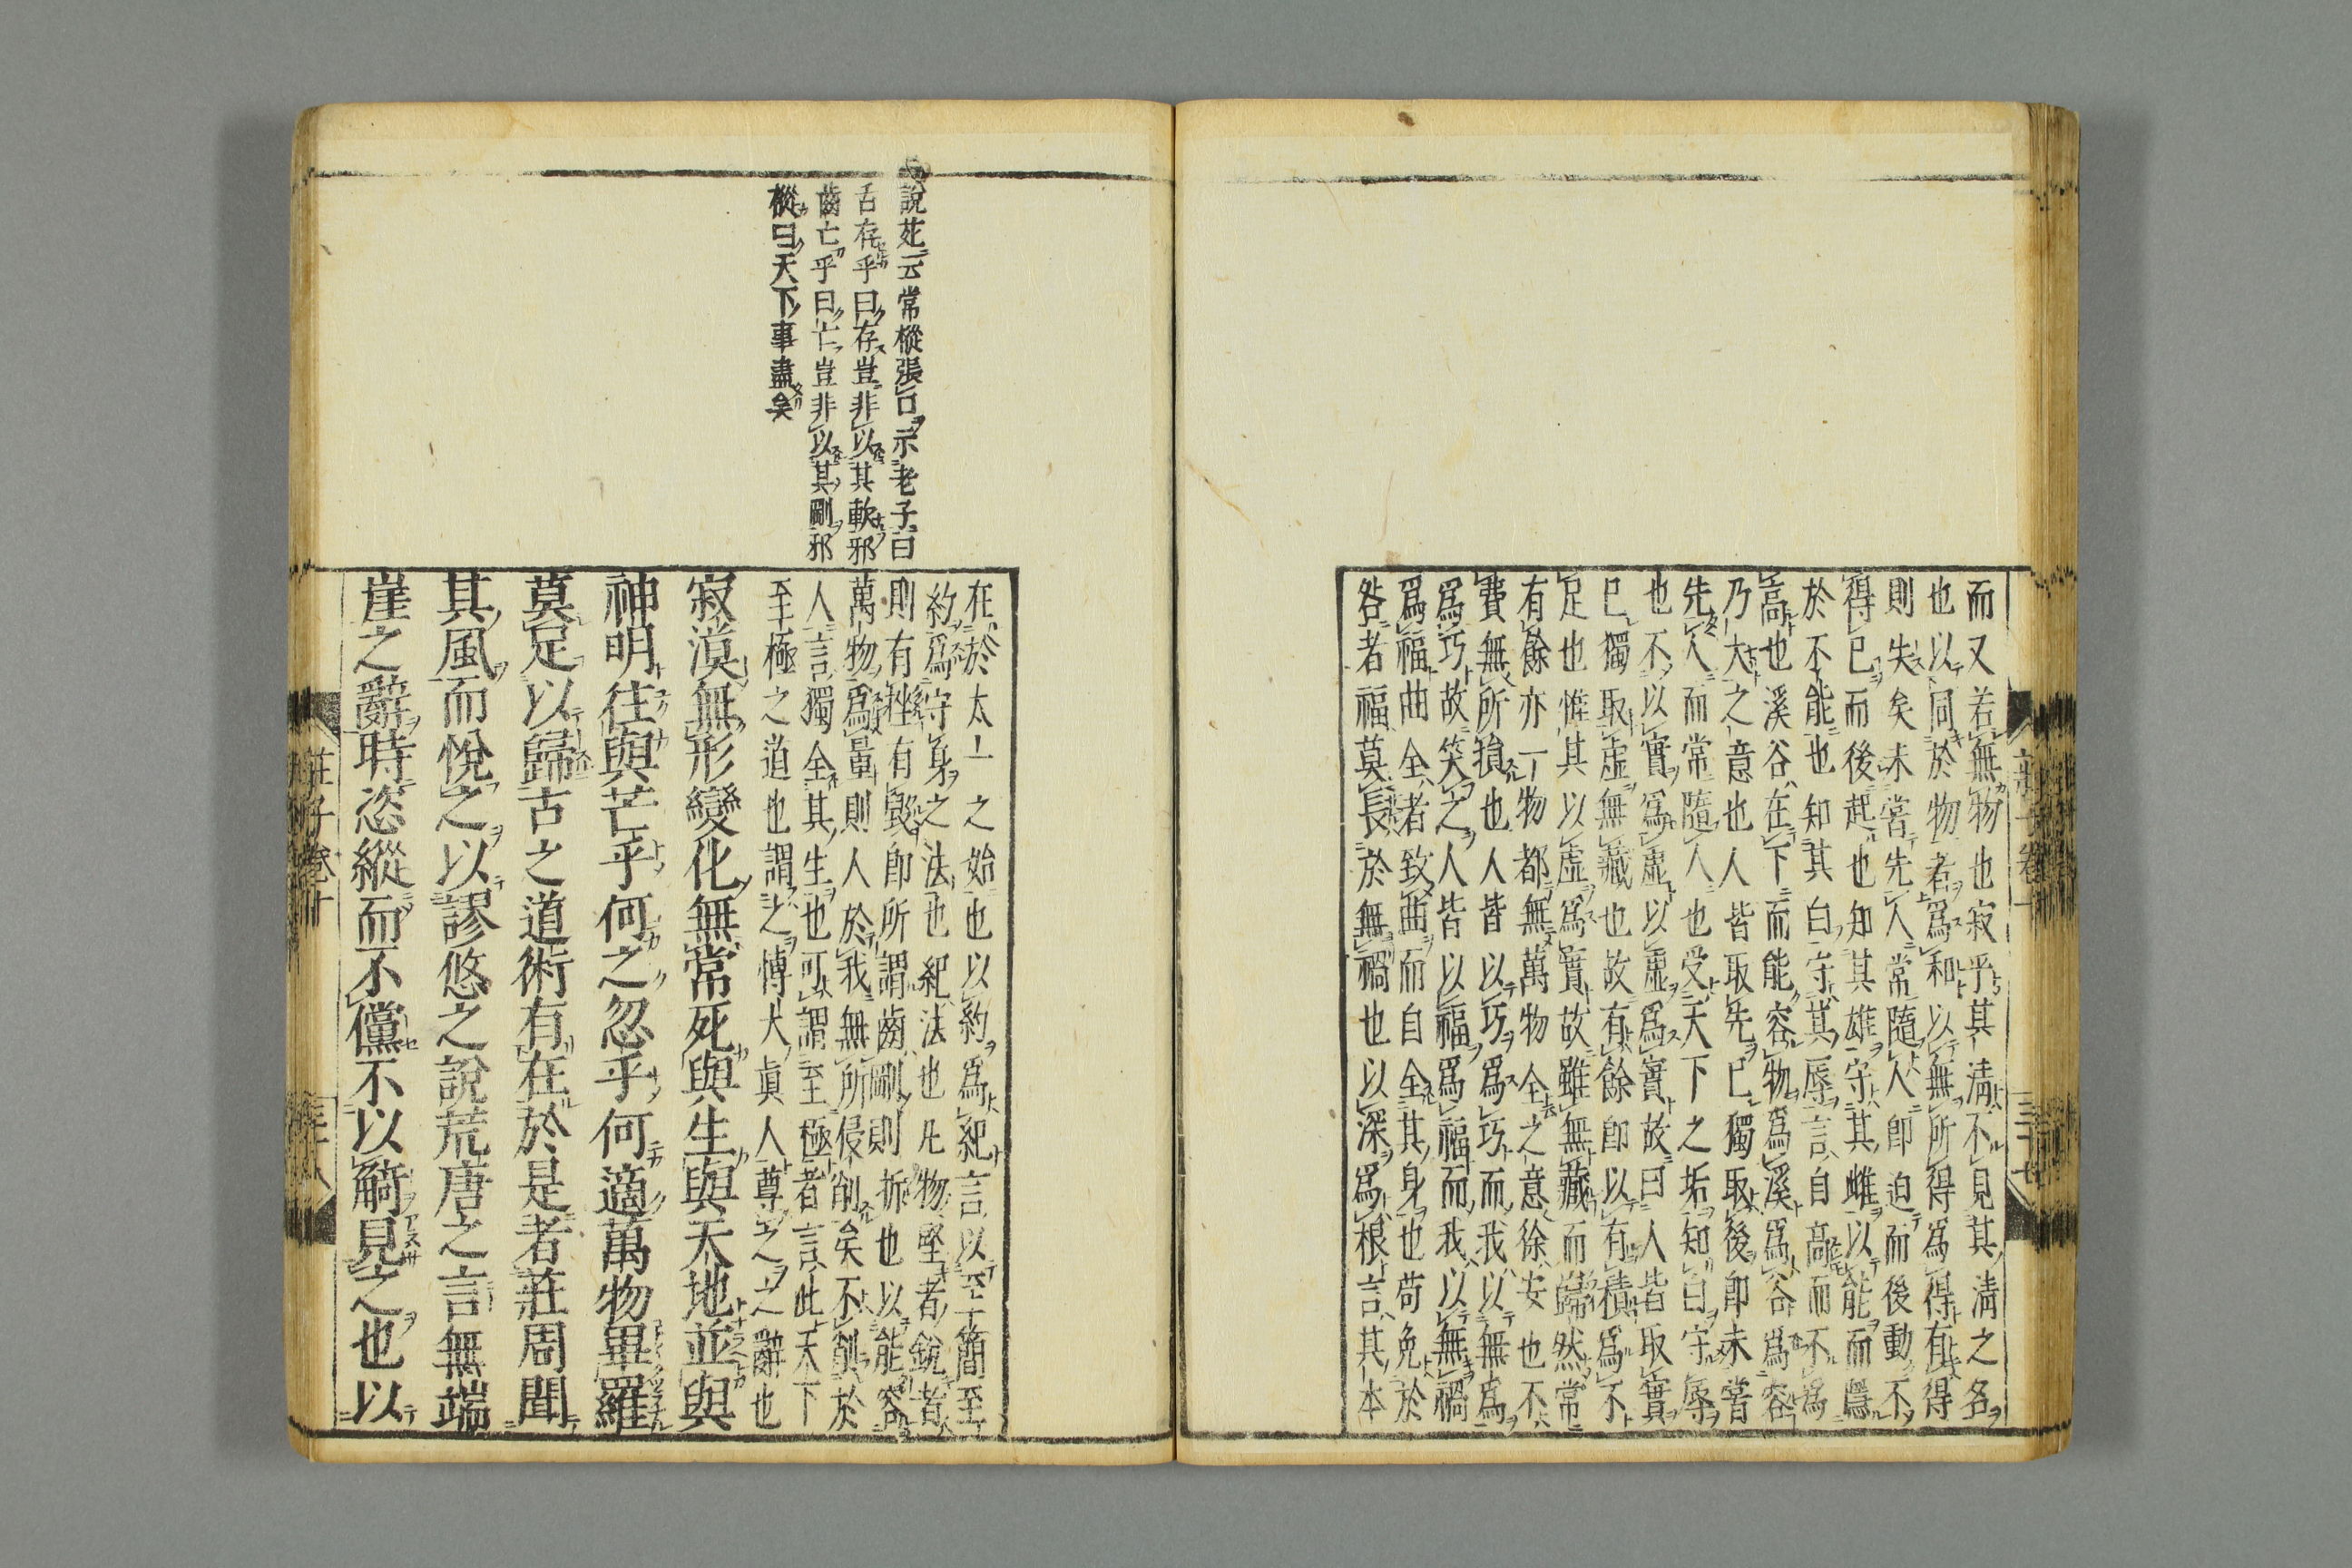 而又若無物也寂乎其清不見其清之名
也以同於物者爲和以無所得爲得有得
則失矣未嘗先人常隨人即迫而後動不
得已而後起也知其雄守其雌以能而隱
於不能也知其白守其辱言自高而不爲
高也溪谷在下而能容物爲溪爲谷爲容
乃大之意也人皆取先已獨取後即未嘗
先人而常隨人也受天下之垢知白守辱
也不以實爲虛以虛爲實故曰人皆取實
已獨取虛無藏也故有餘即以有積爲不
足也惟其以虛爲實故雖無藏而歸然常
有餘亦一物都無萬物全之意徐安也不
費無所損也人皆以巧爲巧而我以無爲
爲巧故笑之人皆以福爲福而我以無禍
爲福曲全者致曲而自全其身也苟免於
咎者福莫長於無禍也以深爲根言其本
莊子卷十
三十七
說苑云常樅張口示老子曰
舌存乎曰存豈非以其軟邪
齒亡乎曰亡豈非以其剛邪
樅曰天下事盡矣
在於太上之始也以約爲紀言以至簡至
約爲守身之法也紀法也凡物堅者銳者
則有挫有毀即所謂齒剛則折也以能容
萬物爲量則人於我無所侵削矣不削於
人言獨全其生也可謂至極者言此天下
至極之道也謂之博大眞人尊之之辭也
寂漠無形變化無常死與生與天地並與
神明往與芒乎何之忽乎何適萬物畢羅
莫足以歸古之道術有在於是者莊周聞
其風而悅之以謬悠之說荒唐之言無端
崖之辭時恣縱而不儻不以觭見之也以
莊子卷十
三十八